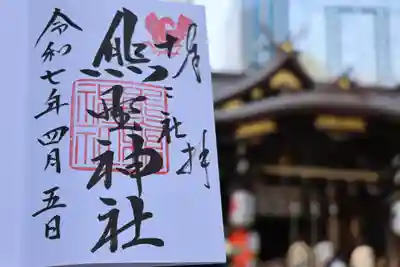 十二社
拝
熊野神社
令和七年四月五日